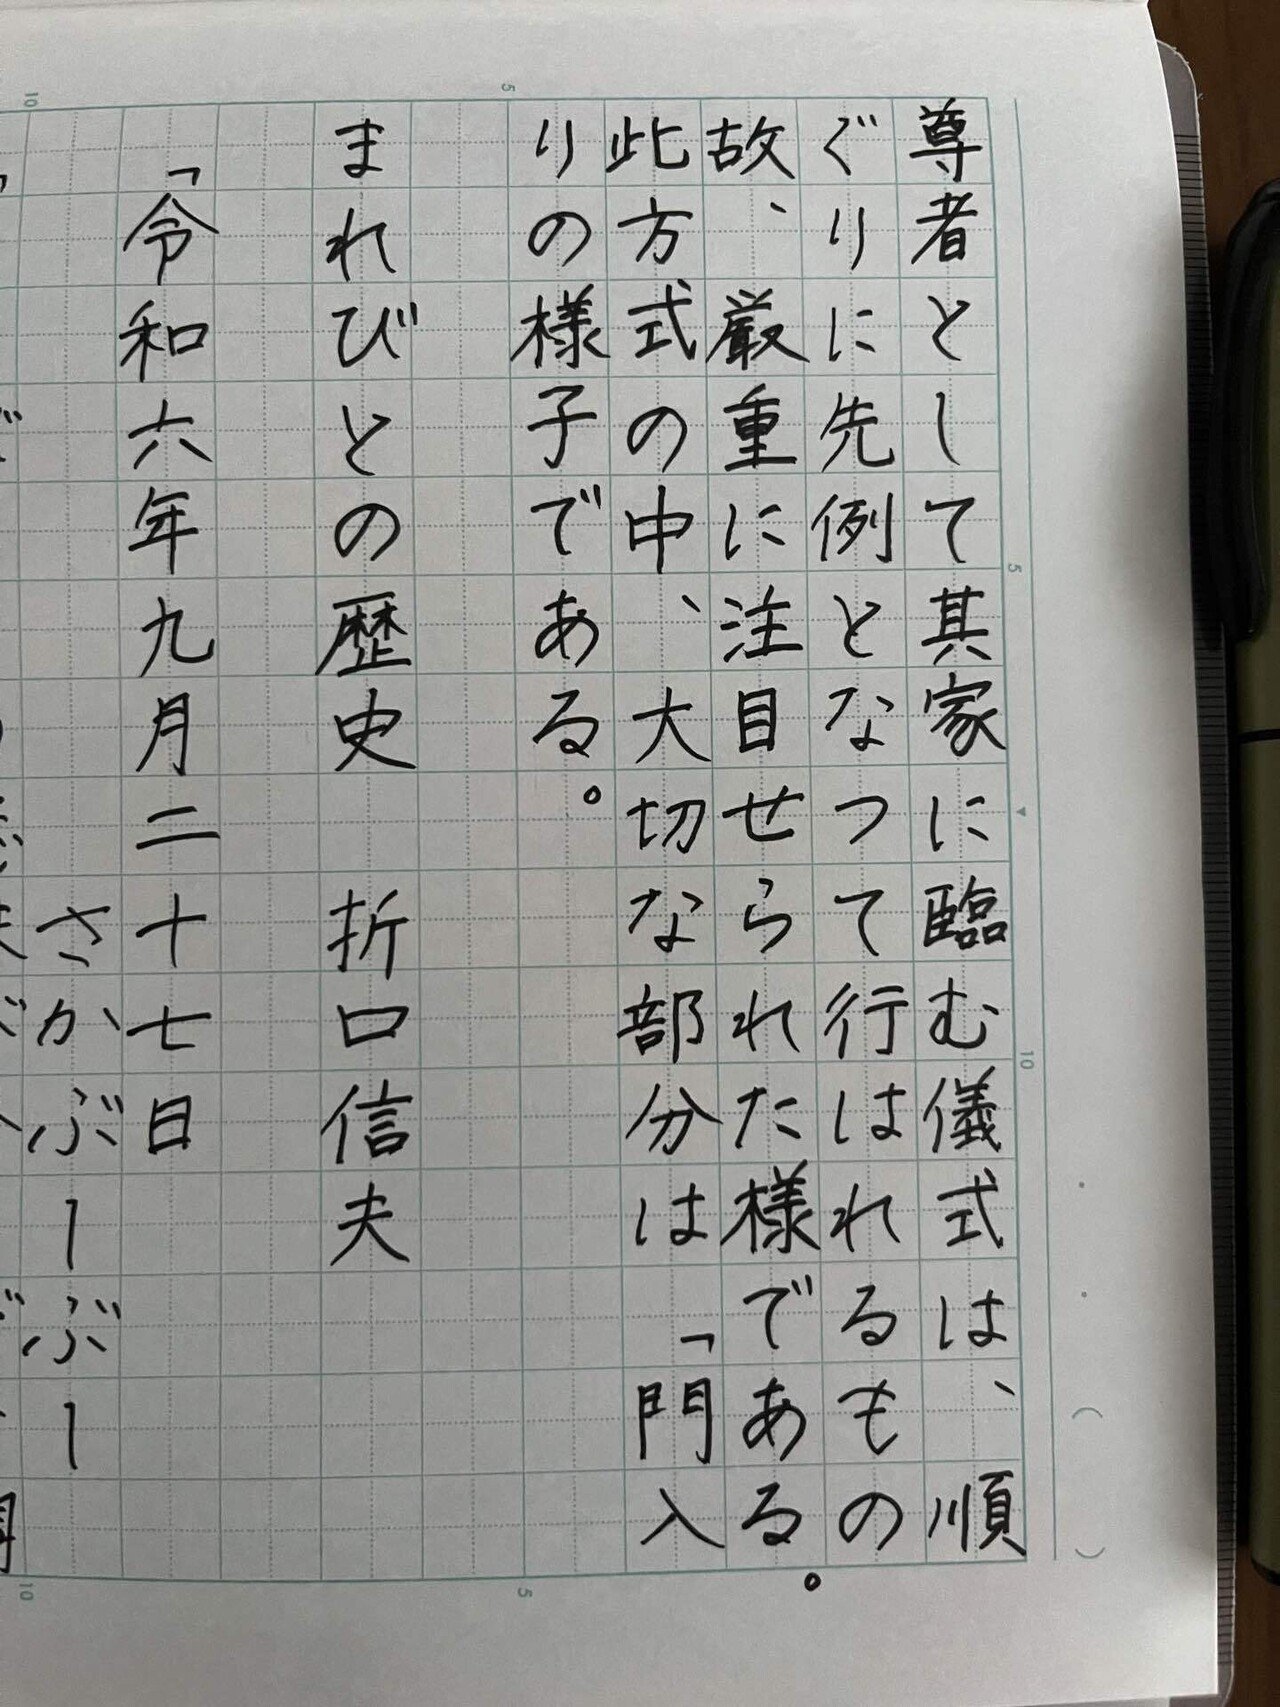 尊者として其家に臨む儀式は、順
ぐりに先例となつて行はれるもの
故、厳重に注目せられた様である。
此方式の中、大切な部分は「門入
りの様子である。
まれびとの歴史　折口信夫
「令和六年九月二十七日
さかぶーぶー